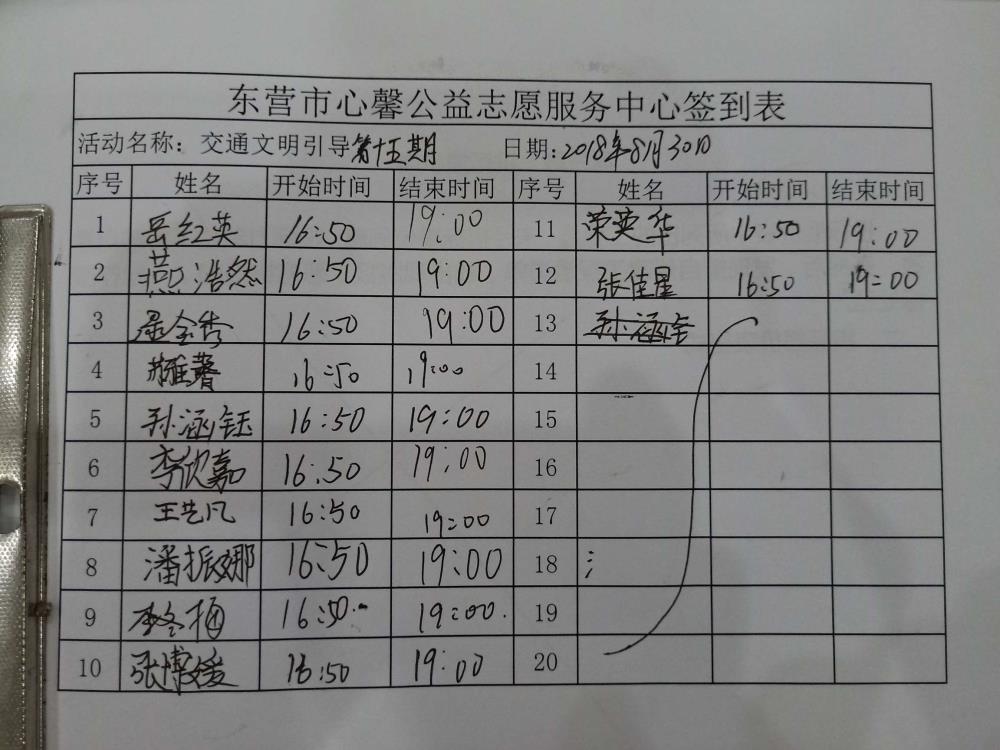 东营市心馨公益志愿服务中心签到表
活动名称：交通文明引导第十五期 日期：2018年8月30日
序号 姓名 开始时间 结束时间 序号 姓名 开始时间 结束时间
1 岳红英 16:50 19:00 11 荣英华 16:50 19:00
2 燕浩然 16:50 19:00 12 张佳星 16:50 19:00
3 16:50 19:00 13 孙涵钰
4 16:50 19:00 14
5 孙涵钰 16:50 19:00 15
6 李欣嘉 16:50 19:00 16
7 王艺凡 16:50 19:00 17
8 潘振娜 16:50 19:00 18
9 李冬梅 16:50 19:00 19
10 张博媛 16:50 19:00 20